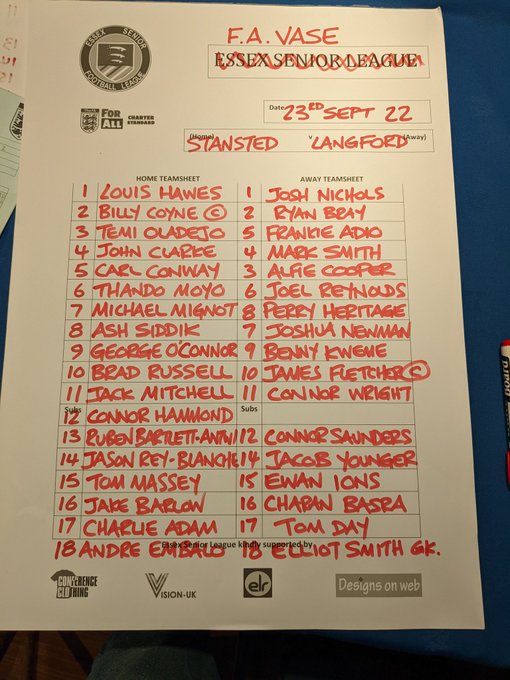 F.A. VASE
ESSEX SENIOR FOOTBALL LEAGUE
ESSEX SENIOR LEAGUE
The FA
FOR ALL
CHARTER STANDARD
Date 23RD SEPT 22
(Home) v (Away)
STANSTED LANGFORD
HOME TEAMSHEET AWAY TEAMSHEET
1 LOUIS HAWES 1 JOSH NICHOLS
2 BILLY COYNE © 2 RYAN BRAY
3 TEMI OLADEJO 5 FRANKIE ADIO
4 JOHN CLARKE 4 MARK SMITH
5 CARL CONWAY 3 ALFIE COOPER
6 THANDO MOYO 6 JOEL REYNOLDS
7 MICHAEL MIGNOT 8 PERRY HERITAGE
8 ASH SIDDIK 7 JOSHUA NEWMAN
9 GEORGE O'CONNOR 9 BENNY KWEME
10 BRAD RUSSELL 10 JAMES FLETCHER ©
11 JACK MITCHELL 11 CONNOR WRIGHT
Subs Subs
12 CONNOR HAMMOND
13 RUBEN BARTLETT-ANTWI 12 CONNOR SAUNDERS
14 JASON REY-BLANCHE 14 JACOB YOUNGER
15 TOM MASSEY 15 EWAN IONS
16 JAKE BARLOW 16 CHARAN BASRA
17 CHARLIE ADAM 17 TOM DAY
18 ANDRE EMBALO 18 ELLIOT SMITH GK.
Essex Senior League kindly supported by
CONFERENCE CLOTHING
VISION-UK
elr
Designs on web